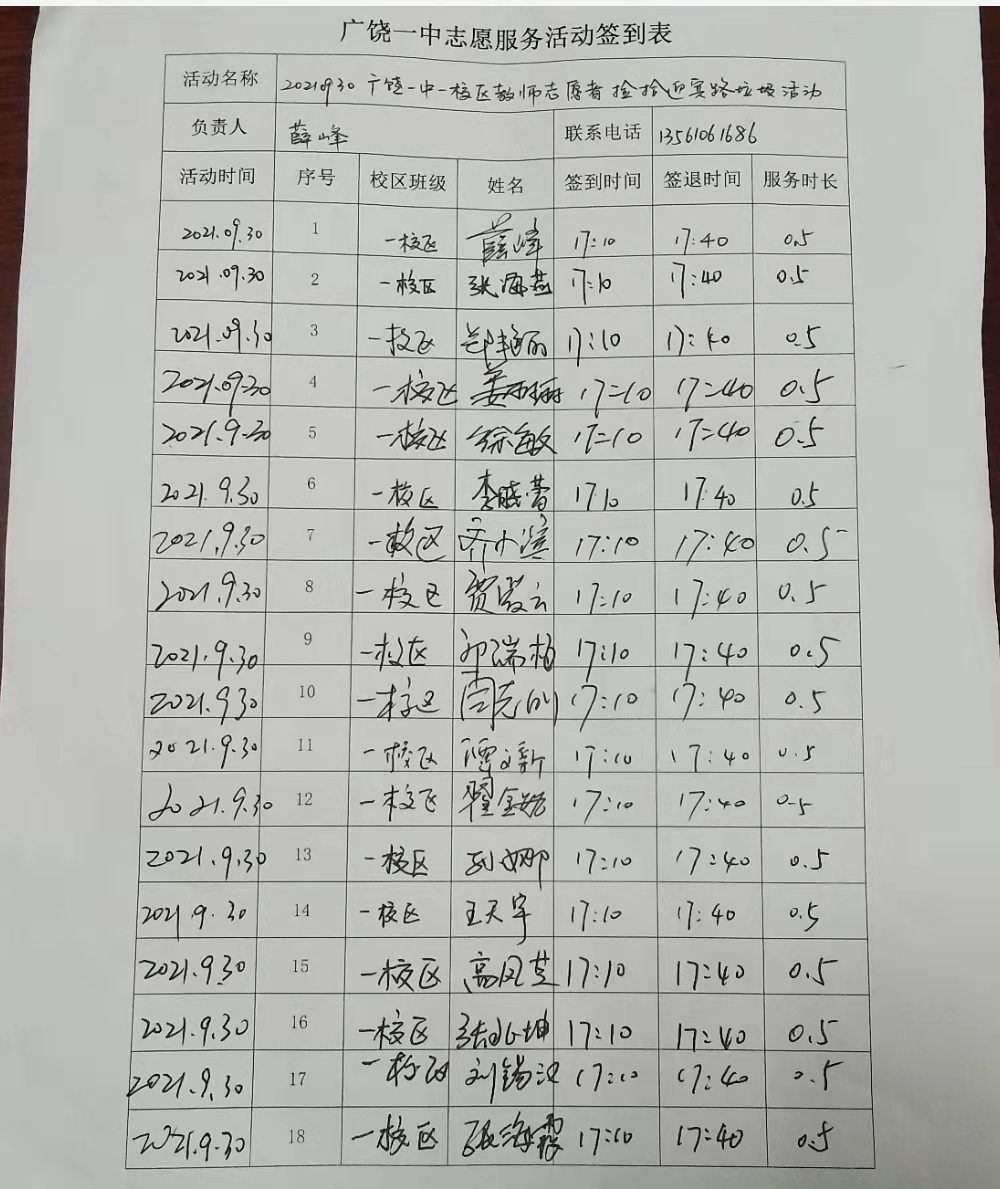 广饶一中志愿服务活动签到表
活动名称 20210930 广饶一中一校区教师志愿者捡拾迎宾路垃圾活动
负责人 薛峰 联系电话 13561061686
活动时间 序号 校区班级 姓名 签到时间 签退时间 服务时长
2021.09.30 1 一校区 薛峰 17:10 17:40 0.5
2021.09.30 2 一校区 张海燕 17:10 17:40 0.5
2021.09.30 3 一校区 17:10 17:40 0.5
2021.09.30 4 一校区 17:10 17:40 0.5
2021.9.30 5 一校区 徐敏 17:10 17:40 0.5
2021.9.30 6 一校区 李晓蕾 17 10 17:40 0.5
2021.9.30 7 一校区 17:10 17:40 0.5
2021.9.30 8 一校区 17:10 17:40 0.5
2021.9.30 9 一校区 17:10 17:40 0.5
2021.9.30 10 一校区 17:10 17:40 0.5
2021.9.30 11 一校区 17:10 17:40 0.5
2021.9.30 12 一校区 17:10 17:40 0.5
2021.9.30 13 一校区 刘娜 17:10 17:40 0.5
2021.9.30 14 一校区 王天宇 17:10 17:40 0.5
2021.9.30 15 一校区 高凤芝 17:10 17:40 0.5
2021.9.30 16 一校区 17:10 17:40 0.5
2021.9.30 17 一校区 17:10 17:40 0.5
2021.9.30 18 一校区 张海霞 17:10 17:40 0.5